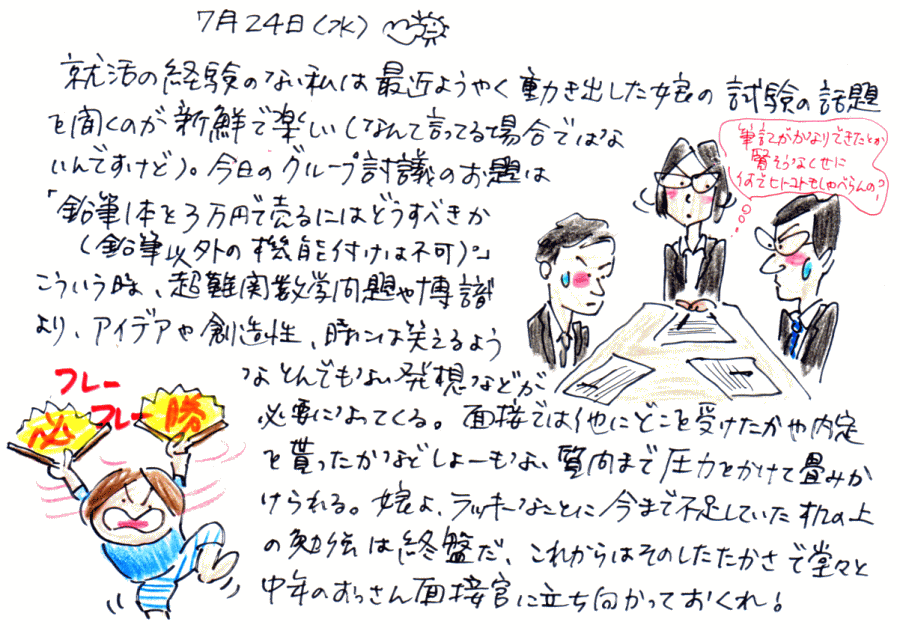 7月24日(水)
就活の経験のない私は最近ようやく動き出した娘の試験の話題
を聞くのが新鮮で楽しい(なんて言ってる場合ではな
いんですけど)。今日のグループ討議のお題は
「鉛筆1本を3万円で売るにはどうすべきか
(鉛筆以外の機能付けは不可)」
こういう時、超難関数学問題や博識
より、アイデアや創造性、時には笑えるよう
なとんでもない発想などが
必要になってくる。面接では他にどこを受けたかや内定
を貰ったかなどしょーもない質問まで圧力をかけて畳みか
けられる。娘よ、ラッキーなことに今まで不足していた机の上
の勉強は終盤だ、これからはそのしたたかさで堂々と
中年のおっさん面接官に立ち向かっておくれ!
筆記がかなりできたとか
賢そうなくせに
何でヒトコトもしゃべらんの?
フレー
フレー
必
勝